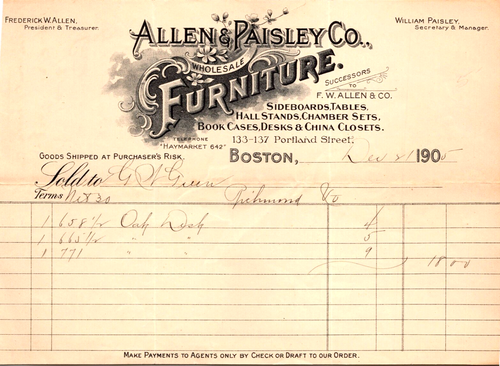 FREDERICK W. ALLEN,
President & Treasurer.
WILLIAM PAISLEY,
Secretary & Manager.
ALLEN & PAISLEY CO.,
WHOLESALE
FURNITURE.
SUCCESSORS
TO
F. W. ALLEN & CO.
SIDEBOARDS, TABLES,
HALL STANDS, CHAMBER SETS,
BOOK CASES, DESKS & CHINA CLOSETS.
TELEPHONE
"HAYMARKET 642"
133-137 Portland Street.
GOODS SHIPPED AT PURCHASER'S RISK.
BOSTON, Dec 21 1905
Sold to G N Green
Terms Net 30 Richmond
1 658 1/2 Oak Desk 4
1 665 1/2 " " 5
1 771 " " 9
18 00
MAKE PAYMENTS TO AGENTS ONLY BY CHECK OR DRAFT TO OUR ORDER.